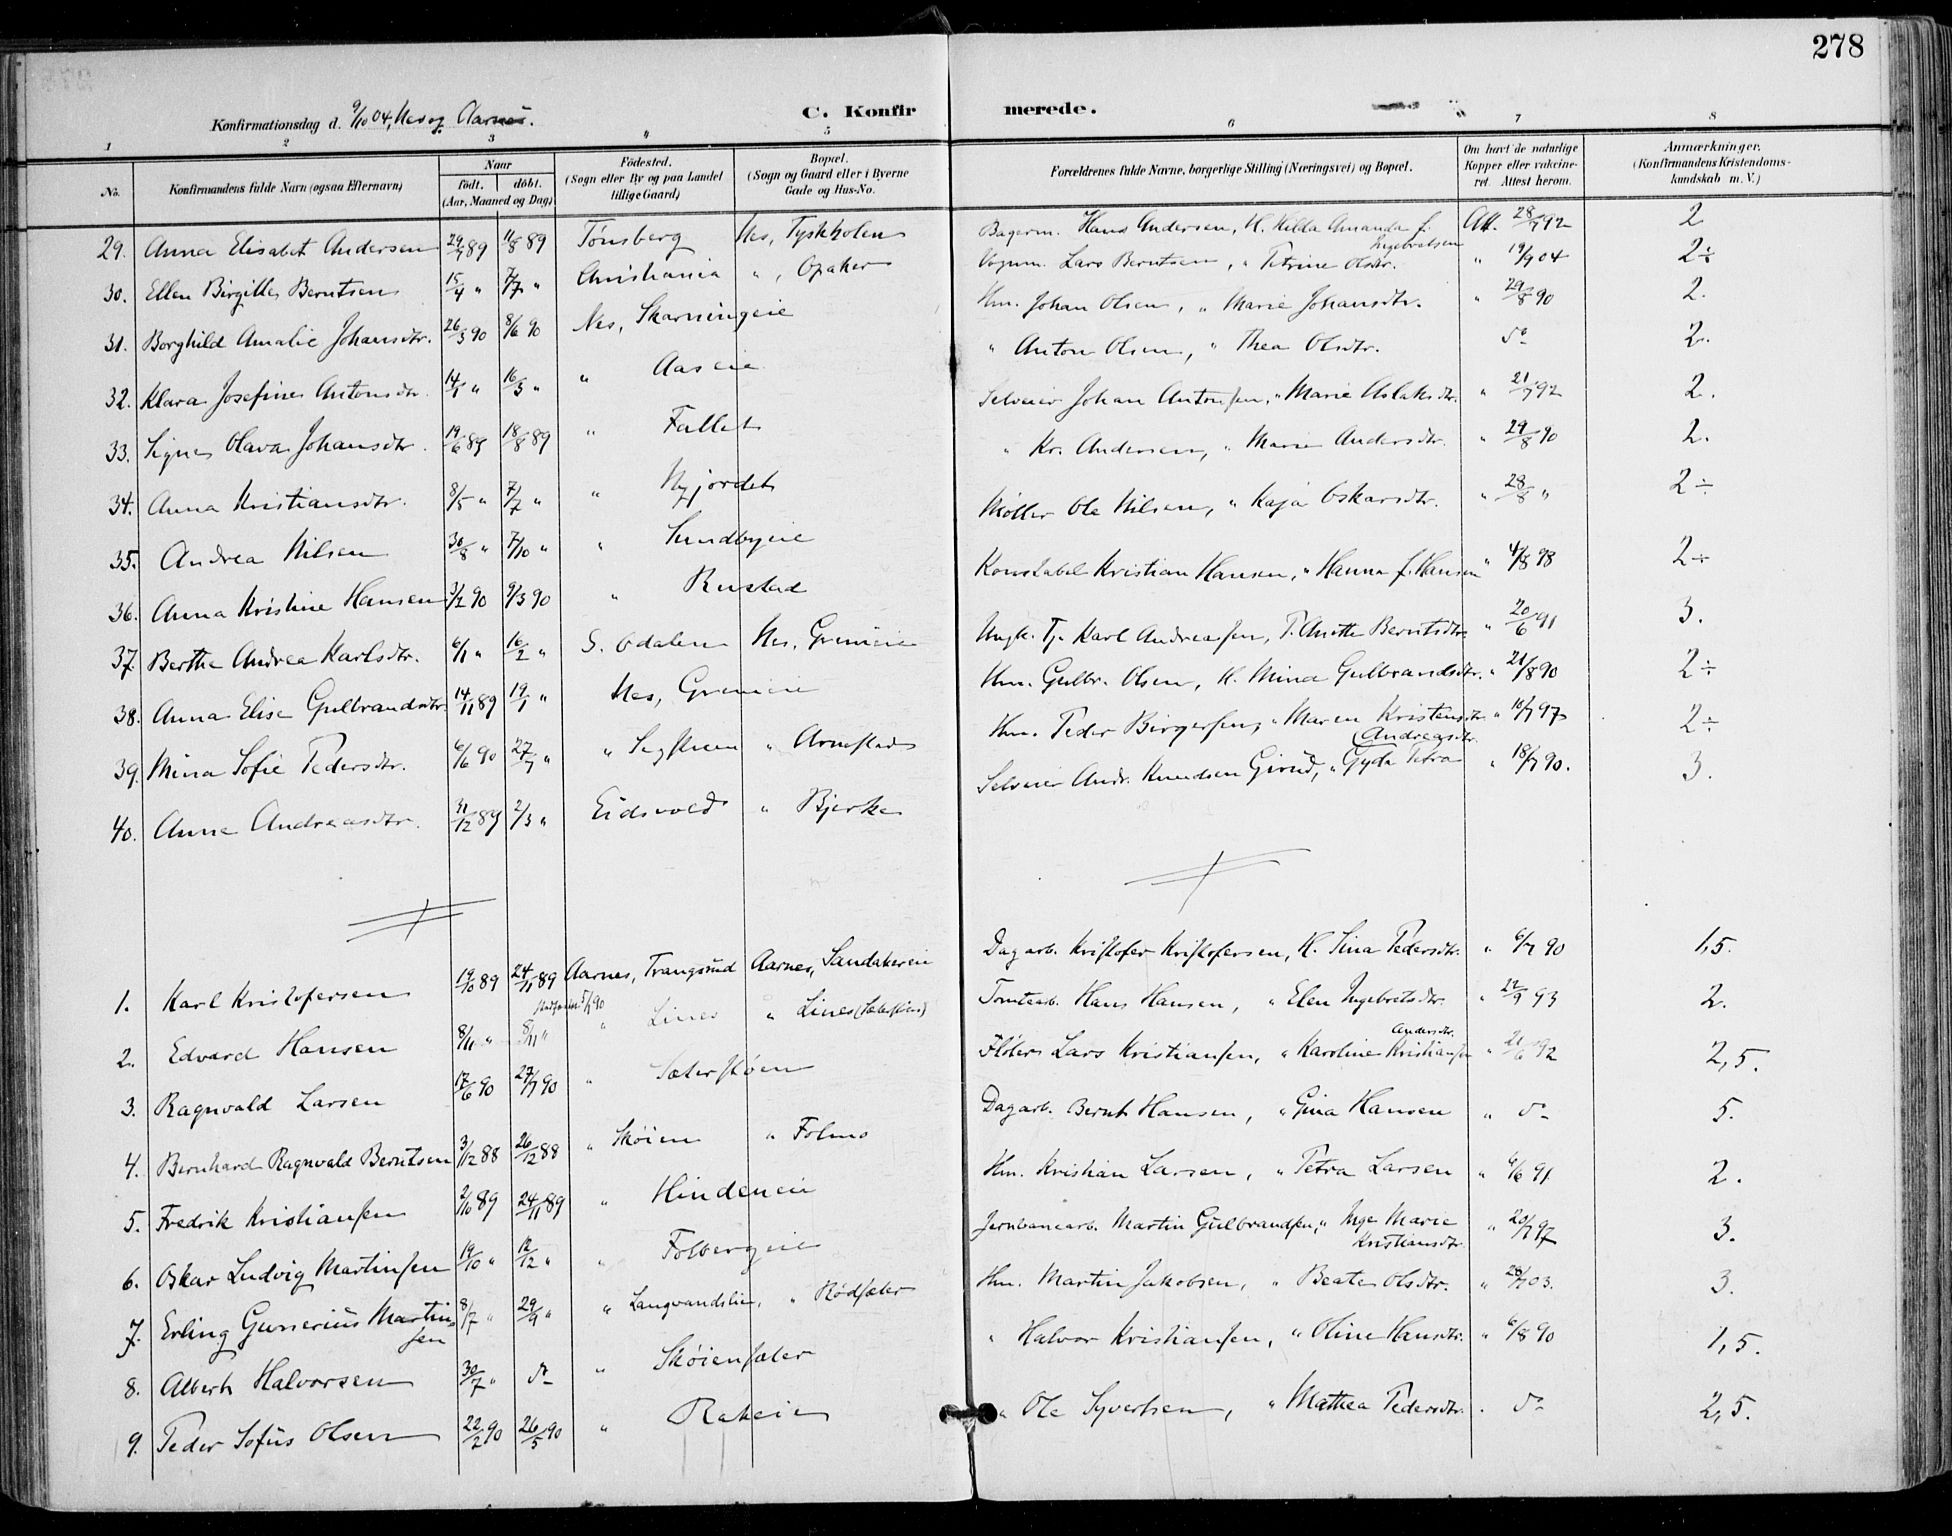 278
Konfirmationsdag d. 9/10 04, Nes og Aarnes.
C. Konfirmerede.
1 2 3 4 5 6 7 8
No. Konfirmandens fulde Navn (ogsaa Efternavn) Naar födt. döbt. (Aar, Maaned og Dag) Födested. (Sogn eller By og paa Landet tillige Gaard) Bopæl. (Sogn og Gaard eller i Byerne Gade og Hus-No. Forældrenes fulde Navne, borgerlige Stilling (Næringsvei) og Bopæl. Om havt de naturlige Kopper eller vakcineret. Attest herom. Anmærkninger. (Konfirmandens Kristendomskundskab m. V.)
29. Anna Elisabet Andersen 29/7 89 11/8 89 Tønsberg Nes, Tyskholen Bagerm. Hans Andersen, H. Hilda Amanda f. Ingebretsen Att. 28/7 92 2
30. Ellen Birgitte Berntsen 15/4 " 7/7 " Christiania " , Opaker Vognm. Lars Berntsen, " Petrine Olsdtr. " 19/9 04 2÷
31. Borghild Amalie Johansdtr. 26/3 90 8/6 90 Nes, Skarningeie Hm. Johan Olsen, " Marie Johansdtr. " 29/8 90 2.
32. Klara Josefine Antonsdtr. 14/1 " 16/3 " " Aaseie " Anton Olsen, " Thea Olsdtr. do 2.
33. Signe Olava Johansdtr. 19/6 89 18/8 89 " Fallet Selveier Johan Antonsen, " Marie Aslaksdtr. " 21/7 92 2.
34. Anna Kristiansdtr. 8/5 " 7/7 " " Nyjordet " Kr. Andersen, " Marie Andersdtr. " 29/8 90 2.
35. Andrea Nilsen 30/8 " 7/10 " " Sundbyeie Møller Ole Nilsen, " Kaja Oskarsdtr. " 28/8 " 2÷
36. Anna Kristine Hansen 3/2 90 9/3 90 " Rustad Konstabel Kristian Hansen, " Hanna f. Hansen " 4/8 98 2÷
37. Berthe Andrea Karlsdtr. 6/1 " 16/2 " S. Odalen Nes, Greneie Ungk. Tj. Karl Andreassen, P. Anette Berntsdtr. " 20/6 91 3.
38. Anna Elise Gulbrandsdtr. 14/11 89 19/1 " Nes, Greneie Hm. Gulbr. Olsen, H. Mina Gulbrandsdtr. " 21/8 90 2÷
39. Mina Sofie Pedersdtr. 6/6 90 27/7 " " " Arnestad Hm. Peder Birgersen, " Maren Kristensdtr. " 18/7 97 2÷
40. Anna Andreasdtr. 31/12 89 2/3 " Eidsvold " Bjerke Selveier Andr. Knudsen Girud, " Gyda Petra Andreasdtr. " 18/7 90. 3.
1. Karl Kristofersen 19/10 89 24/11 89 Aarnes, Trangsund Aarnes, Sandakereie Dagarb. Kristofer Kristofersen, H. Sina Pedersdtr. " 6/7 90 1,5.
2. Edvard Hansen 8/11 " 8/11 " " Lines " Lines Tomtearb. Hans Hansen, " Elen Ingebretsdtr. " 22/9 93 2.
3. Ragnvald Larsen 17/6 90 27/7 90 " Sæterstøen Fløter Lars Kristiansen, " Karoline Andersdtr. Kristiansen " 21/6 92 2,5.
4. Bernhard Ragnvald Berntsen 3/12 88 26/12 88 " Skøien " Folmo Dagarb. Bernt Hansen, " Gina Hansen " do 5.
5. Fredrik Kristiansen 2/10 89 24/11 89 " Hindeneie Hm. Kristian Larsen, " Petra Larsen " 6/6 91 2.
6. Oskar Ludvig Martinsen 19/10 " 12/12 " " Folbergeie Jernbanearb. Martin Gulbrandsen, " Inge Marie Kristiansdtr. " 20/7 97 3.
7. Erling Gunerius Martinsen 8/7 " 29/9 " " Langvandslien, " Rødsæter Hm. Martin Jakobsen, " Beate Olsdtr. " 28/7 03. 3.
8. Albert Halvorsen 30/7 " do " Skøiensæter " Halvor Kristiansen, " Oline Hansdtr. " 6/8 90 1,5.
9. Peder Sofus Olsen 22/2 90 26/5 90 " Rakeie " Ole Syversen, " Mathea Pedersdtr. " do 2,5.